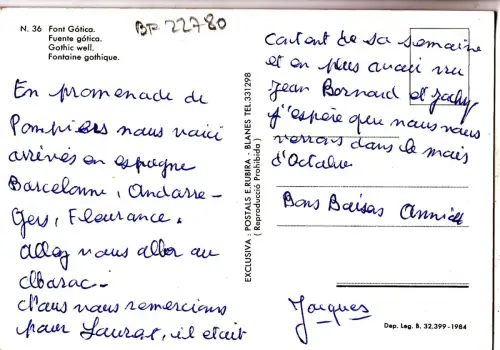 N. 36 Font Gótica.
Fuente gótica.
Gothic well.
Fontaine gothique.
BF 22780
En promenade de
Pompiers nous voici
arrivés en espagne
Barcelonne, Andorre -
Gers, Fleurance.
allez nous aller au
nous nous remercions
pour Laurat, il était
EXCLUSIVA: POSTALS E.RUBIRA - BLANES TEL.331298
( Reproducció Prohibida )
content de sa semaine
et en plus avait vu
Jean Bernard et Jacky
J'espère que nous nous
verrons dans le mois
d'Octobre
Bons Baisers Annick
Jacques
Dep. Leg. B. 32.399 - 1984